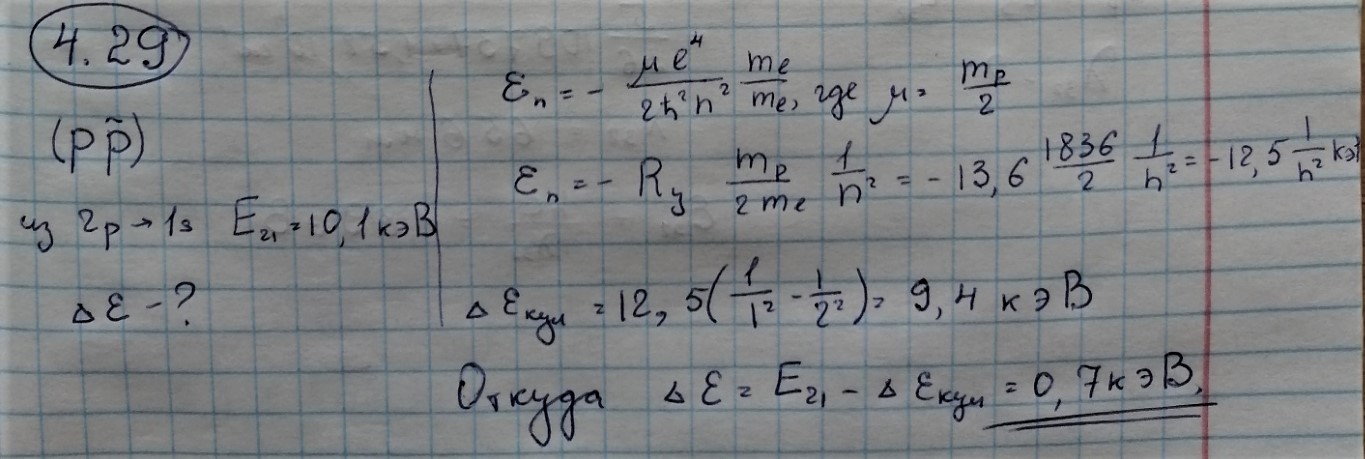 4.29
(p p̃)
из 2p → 1s E₂₁ = 10,1 кэВ
Δε - ?
εₙ = - μe⁴/(2ħ²n²) mₑ/mₑ, где μ = mₚ/2
εₙ = - R_y mₚ/(2mₑ) 1/n² = - 13,6 1836/2 1/n² = - 12,5 1/n² кэВ
Δε_кул = 12,5(1/1² - 1/2²) = 9,4 кэВ
Откуда Δε = E₂₁ - Δε_кул = 0,7 кэВ.